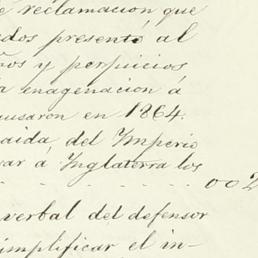 e reclamacion que
dos presentó al
ños y perjuicios
a enagenacion á
usaron en 1864.
aida del Imperio
var á Inglaterra los
. . . . . . . . . . 002
verbal del defensor
simplificar el in-